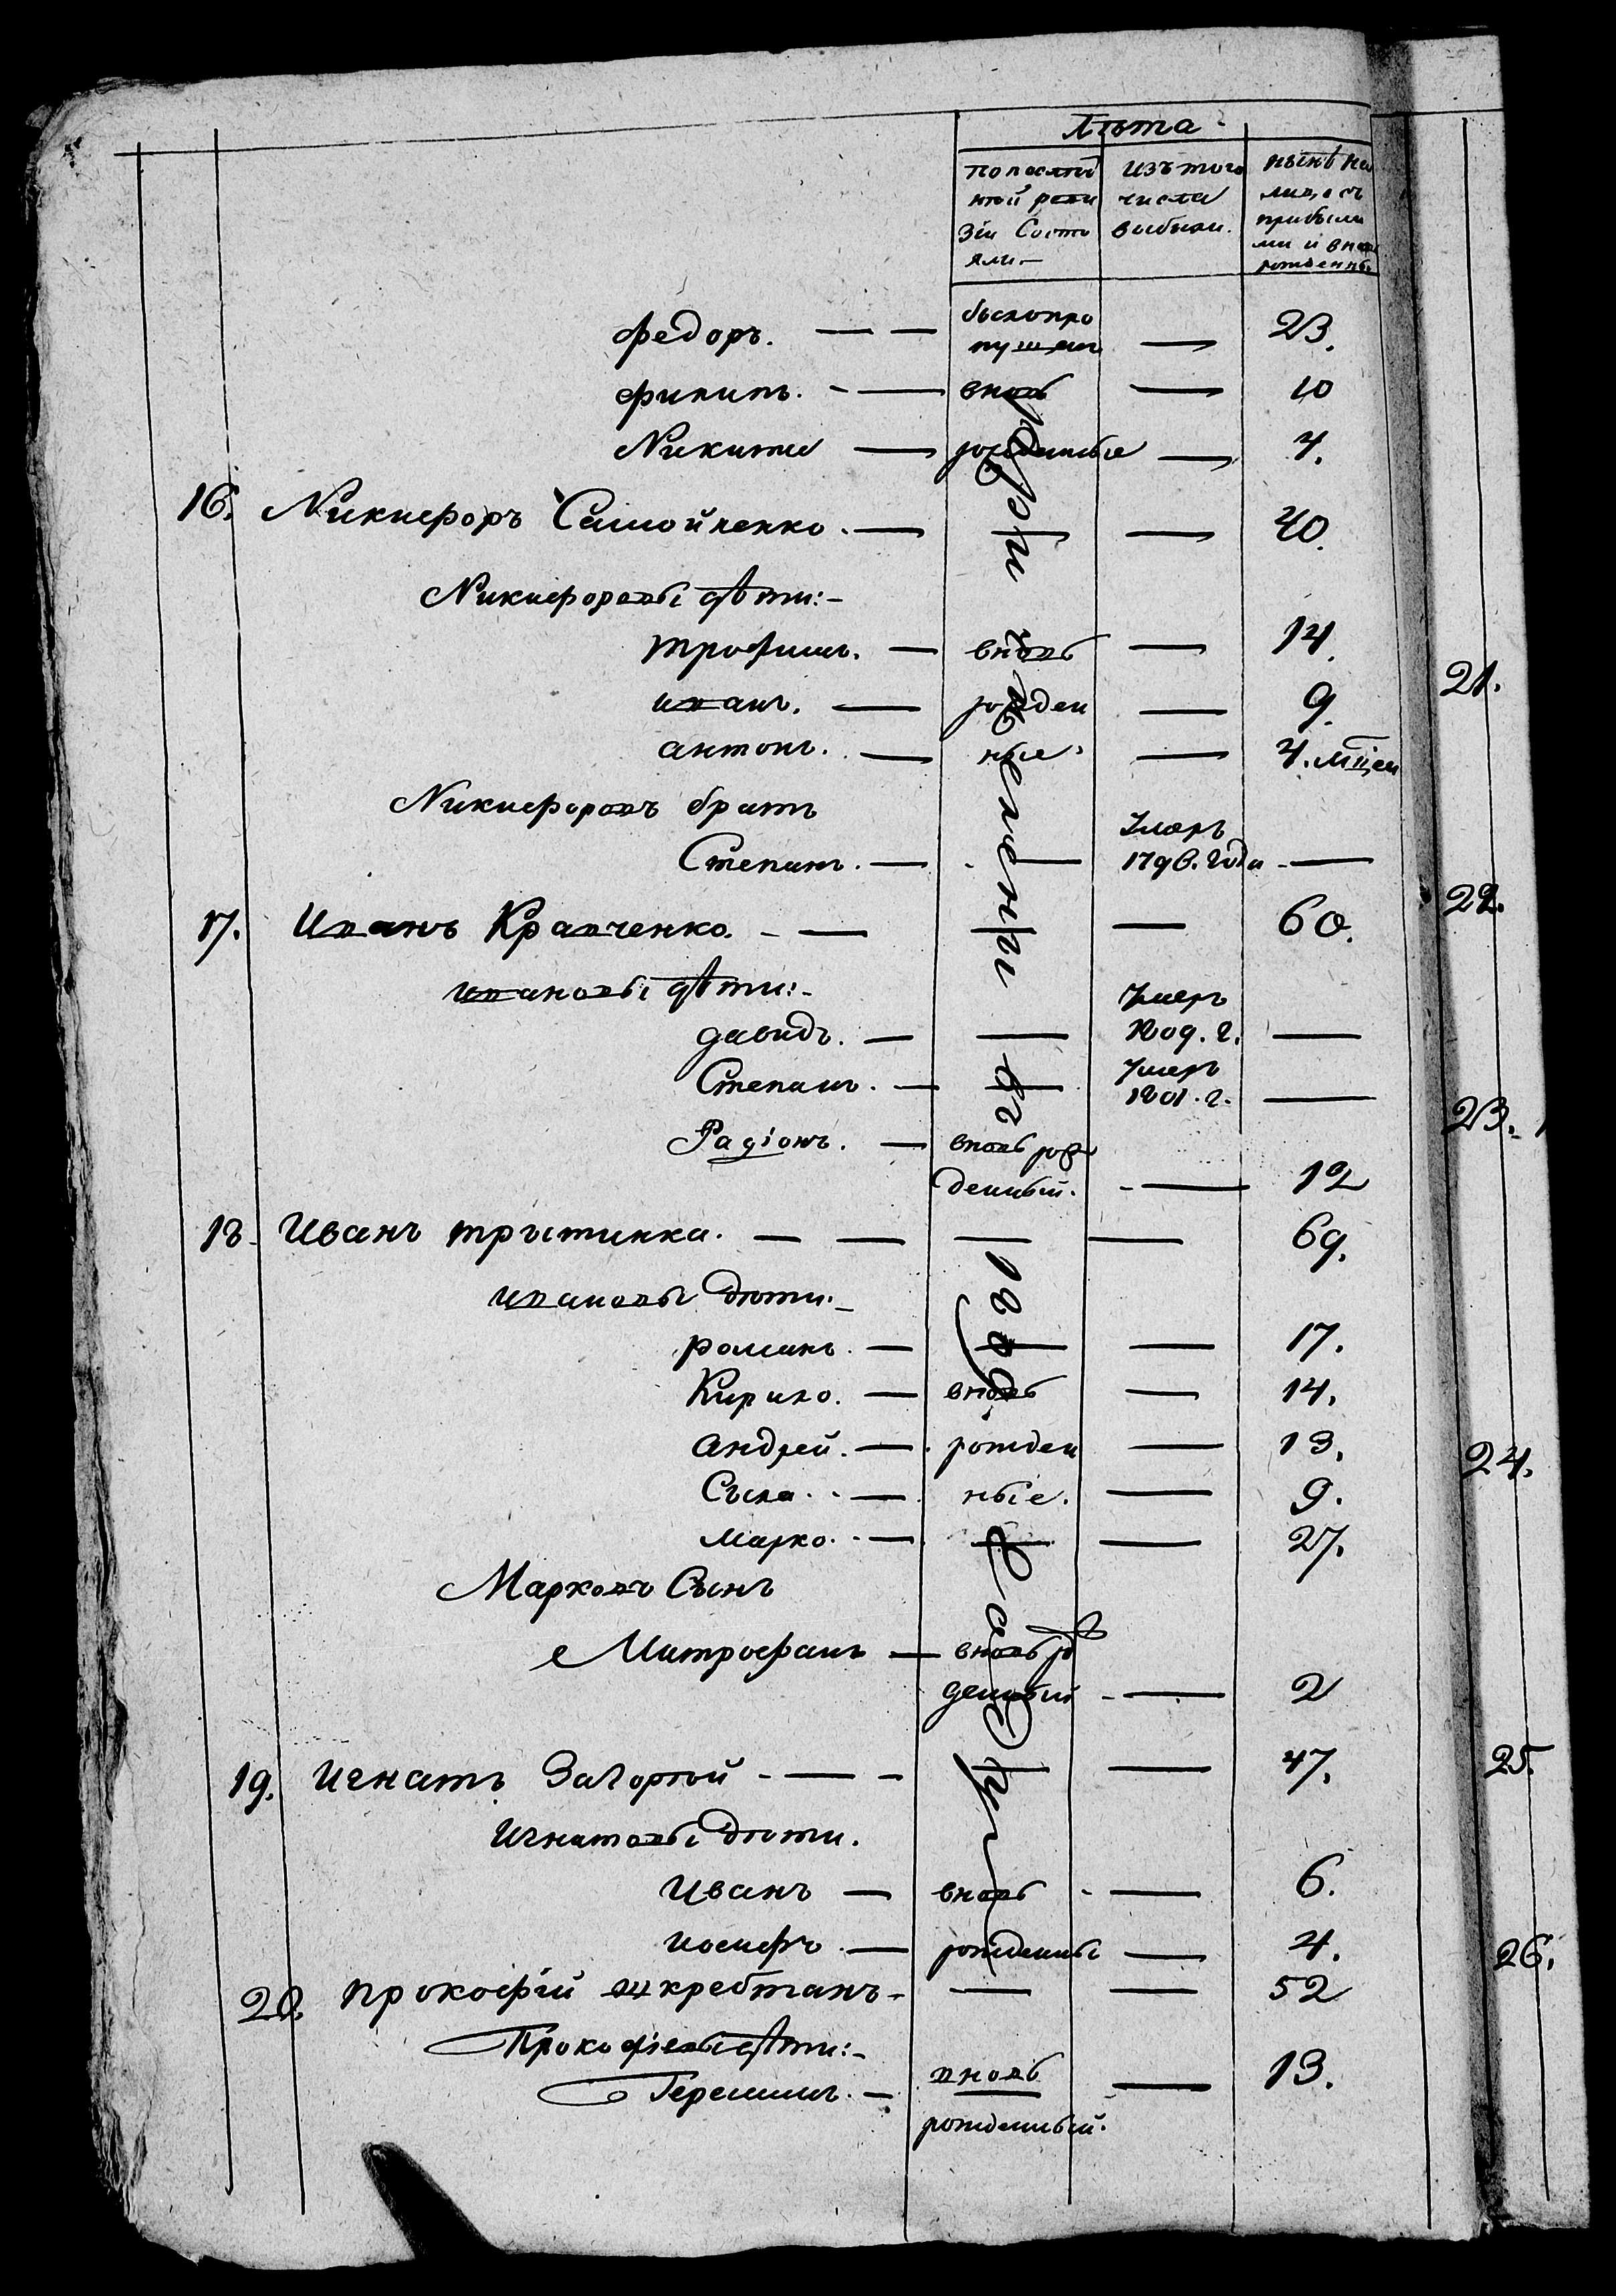 Лѣта
по послѣд изъ того нынѣ на
ней реви числа лицо съ
зіи Состо выбыли. прибылы
яли.— ми и вновь
рожденны.
федоръ. — — былъ про
пущенъ — 23.
филипъ. — вновь — 10
Никита — рожденные — 4.
16. Никифоръ Самойленко. — — — 40.
Никифоровы дѣти:—
трофимъ. — вновь — 14.
иванъ. — рожден — 9.
антонъ. — ные — 4. мцей
Никифоровъ братъ
Степанъ. — — Умеръ
1796. года —
17. Иванъ Кравченко. — — — — 60.
ивановы дѣти:—
давидъ. — — Умеръ
1809. г. —
Степанъ. — — Умеръ
1801. г. —
Радіонъ. — вновь рож
денный. — 12
18. Иванъ тръстинка. — — — — 69.
ивановы дѣти:—
романъ. — — — 17.
Кирило. — вновь — 14.
андрей. — рожден — 13.
Сысла. — ные. — 9.
марко. — — — 27.
Марковъ Сынъ
Митрофанъ — вновь ро
денный — 2
19. Игнатъ Загорной — — — — 47.
Игнатовы дѣти.
Иванъ — вновь — 6.
иосифъ — рожденны — 4.
20. прокофій шкребтанъ — — — 52
Прокофіевы дѣти:—
Герасимъ. — вновь — 13.
рожденный.
въ
1809.
Году
21.
22.
23.
24.
25.
26.